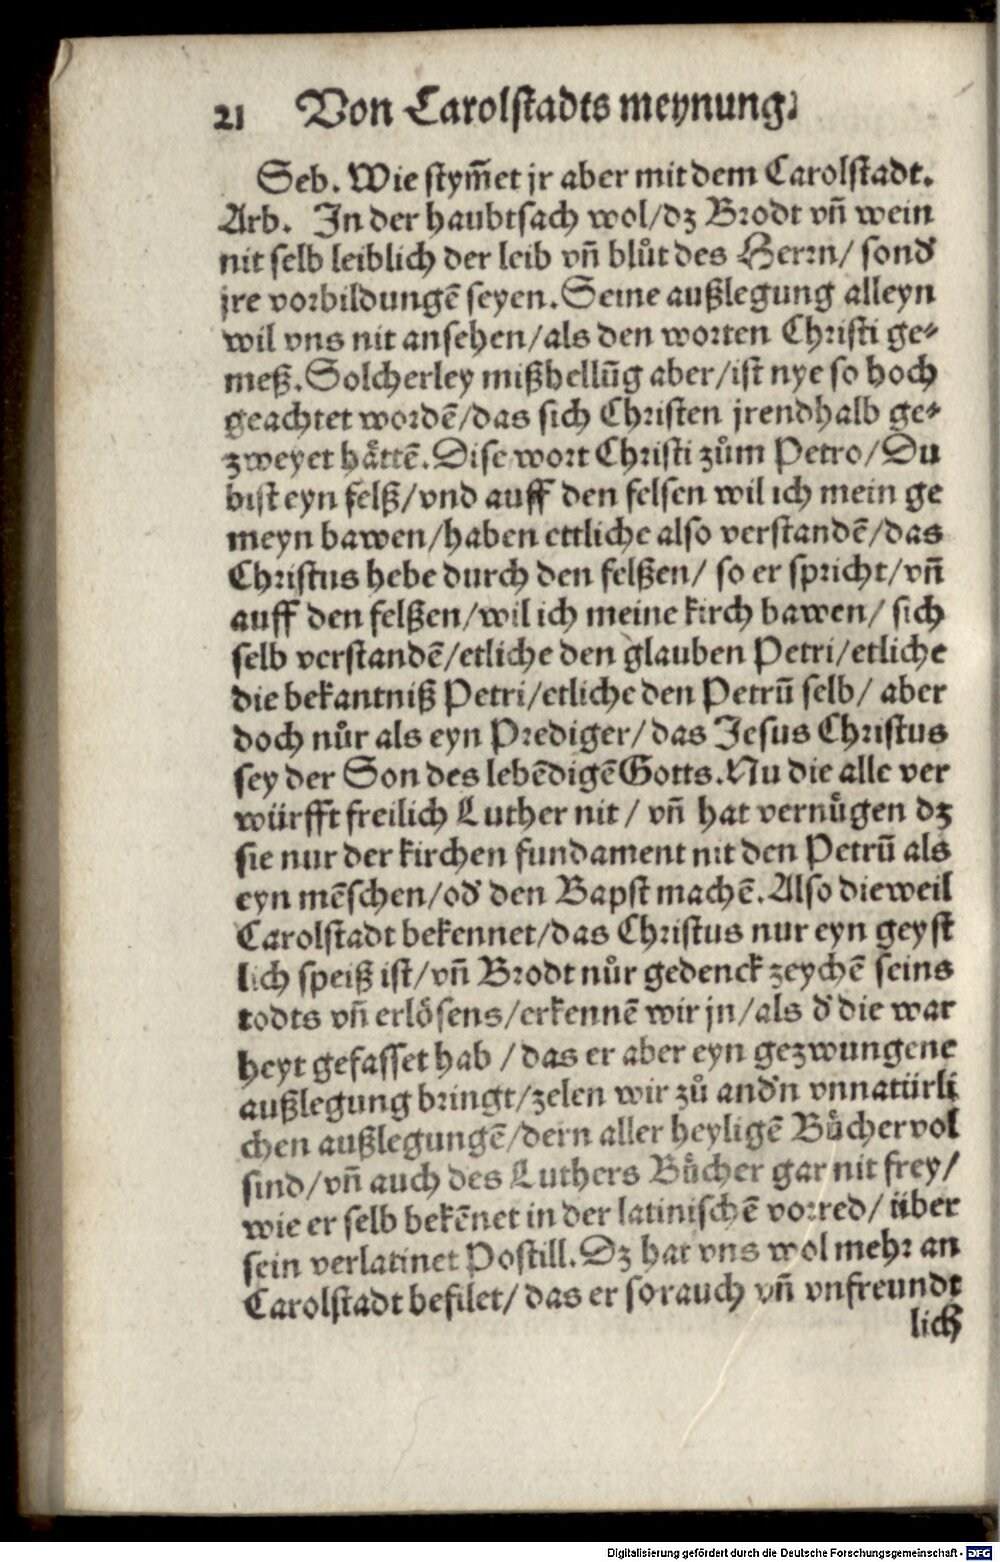 21 Von Carolstadts meynung.
Seb. Wie stym̃et jr aber mit dem Carolstadt.
Arb. In der haubtsach wol/dz Brodt vñ wein
nit selb leiblich der leib vñ blůt des Herrn/ sond̕
jre vorbildungẽ seyen. Seine außlegung alleyn
wil vns nit ansehen/als den worten Christi ge⸗
meß. Solcherley mißhellũg aber/ist nye so hoch
geachtet wordẽ/das sich Christen jrendhalb ge⸗
zweyet håttẽ. Dise wort Christi zům Petro/Du
bist eyn felß/vnd auff den felsen wil ich mein ge
meyn bawen/haben ettliche also verstandẽ/das
Christus hebe durch den felßen/ so er spricht/vñ
auff den felßen/wil ich meine kirch bawen/ sich
selb verstandẽ/etliche den glauben Petri/etliche
die bekantniß Petri/etliche den Petrũ selb/ aber
doch nůr als eyn Prediger/das Jesus Christus
sey der Son des lebẽdigẽ Gotts. Nu die alle ver
würfft freilich Luther nit/ vñ hat vernůgen dz
sie nur der kirchen fundament nit den Petrũ als
eyn mẽschen/od̕ den Bapst machẽ. Also dieweil
Carolstadt bekennet/das Christus nur eyn geyst
lich speiß ist/vñ Brodt nůr gedenck zeychẽ seins
todts vñ erlösens/erkennẽ wir jn/als d̕ die war
heyt gefasset hab/das er aber eyn gezwungene
außlegung bringt/zelen wir zů and̕n vnnatürli
chen außlegungẽ/dern aller heyligẽ Bůcher vol
sind/vñ auch des Luthers Bůcher gar nit frey/
wie er selb bekẽnet in der latinischẽ vorred/ über
sein verlatinet Postill. Dz hat vns wol mehr an
Carolstadt befilet/das er so rauch vñ vnfreundt
lich
Digitalisierung gefördert durch die Deutsche Forschungsgemeinschaft - DFG